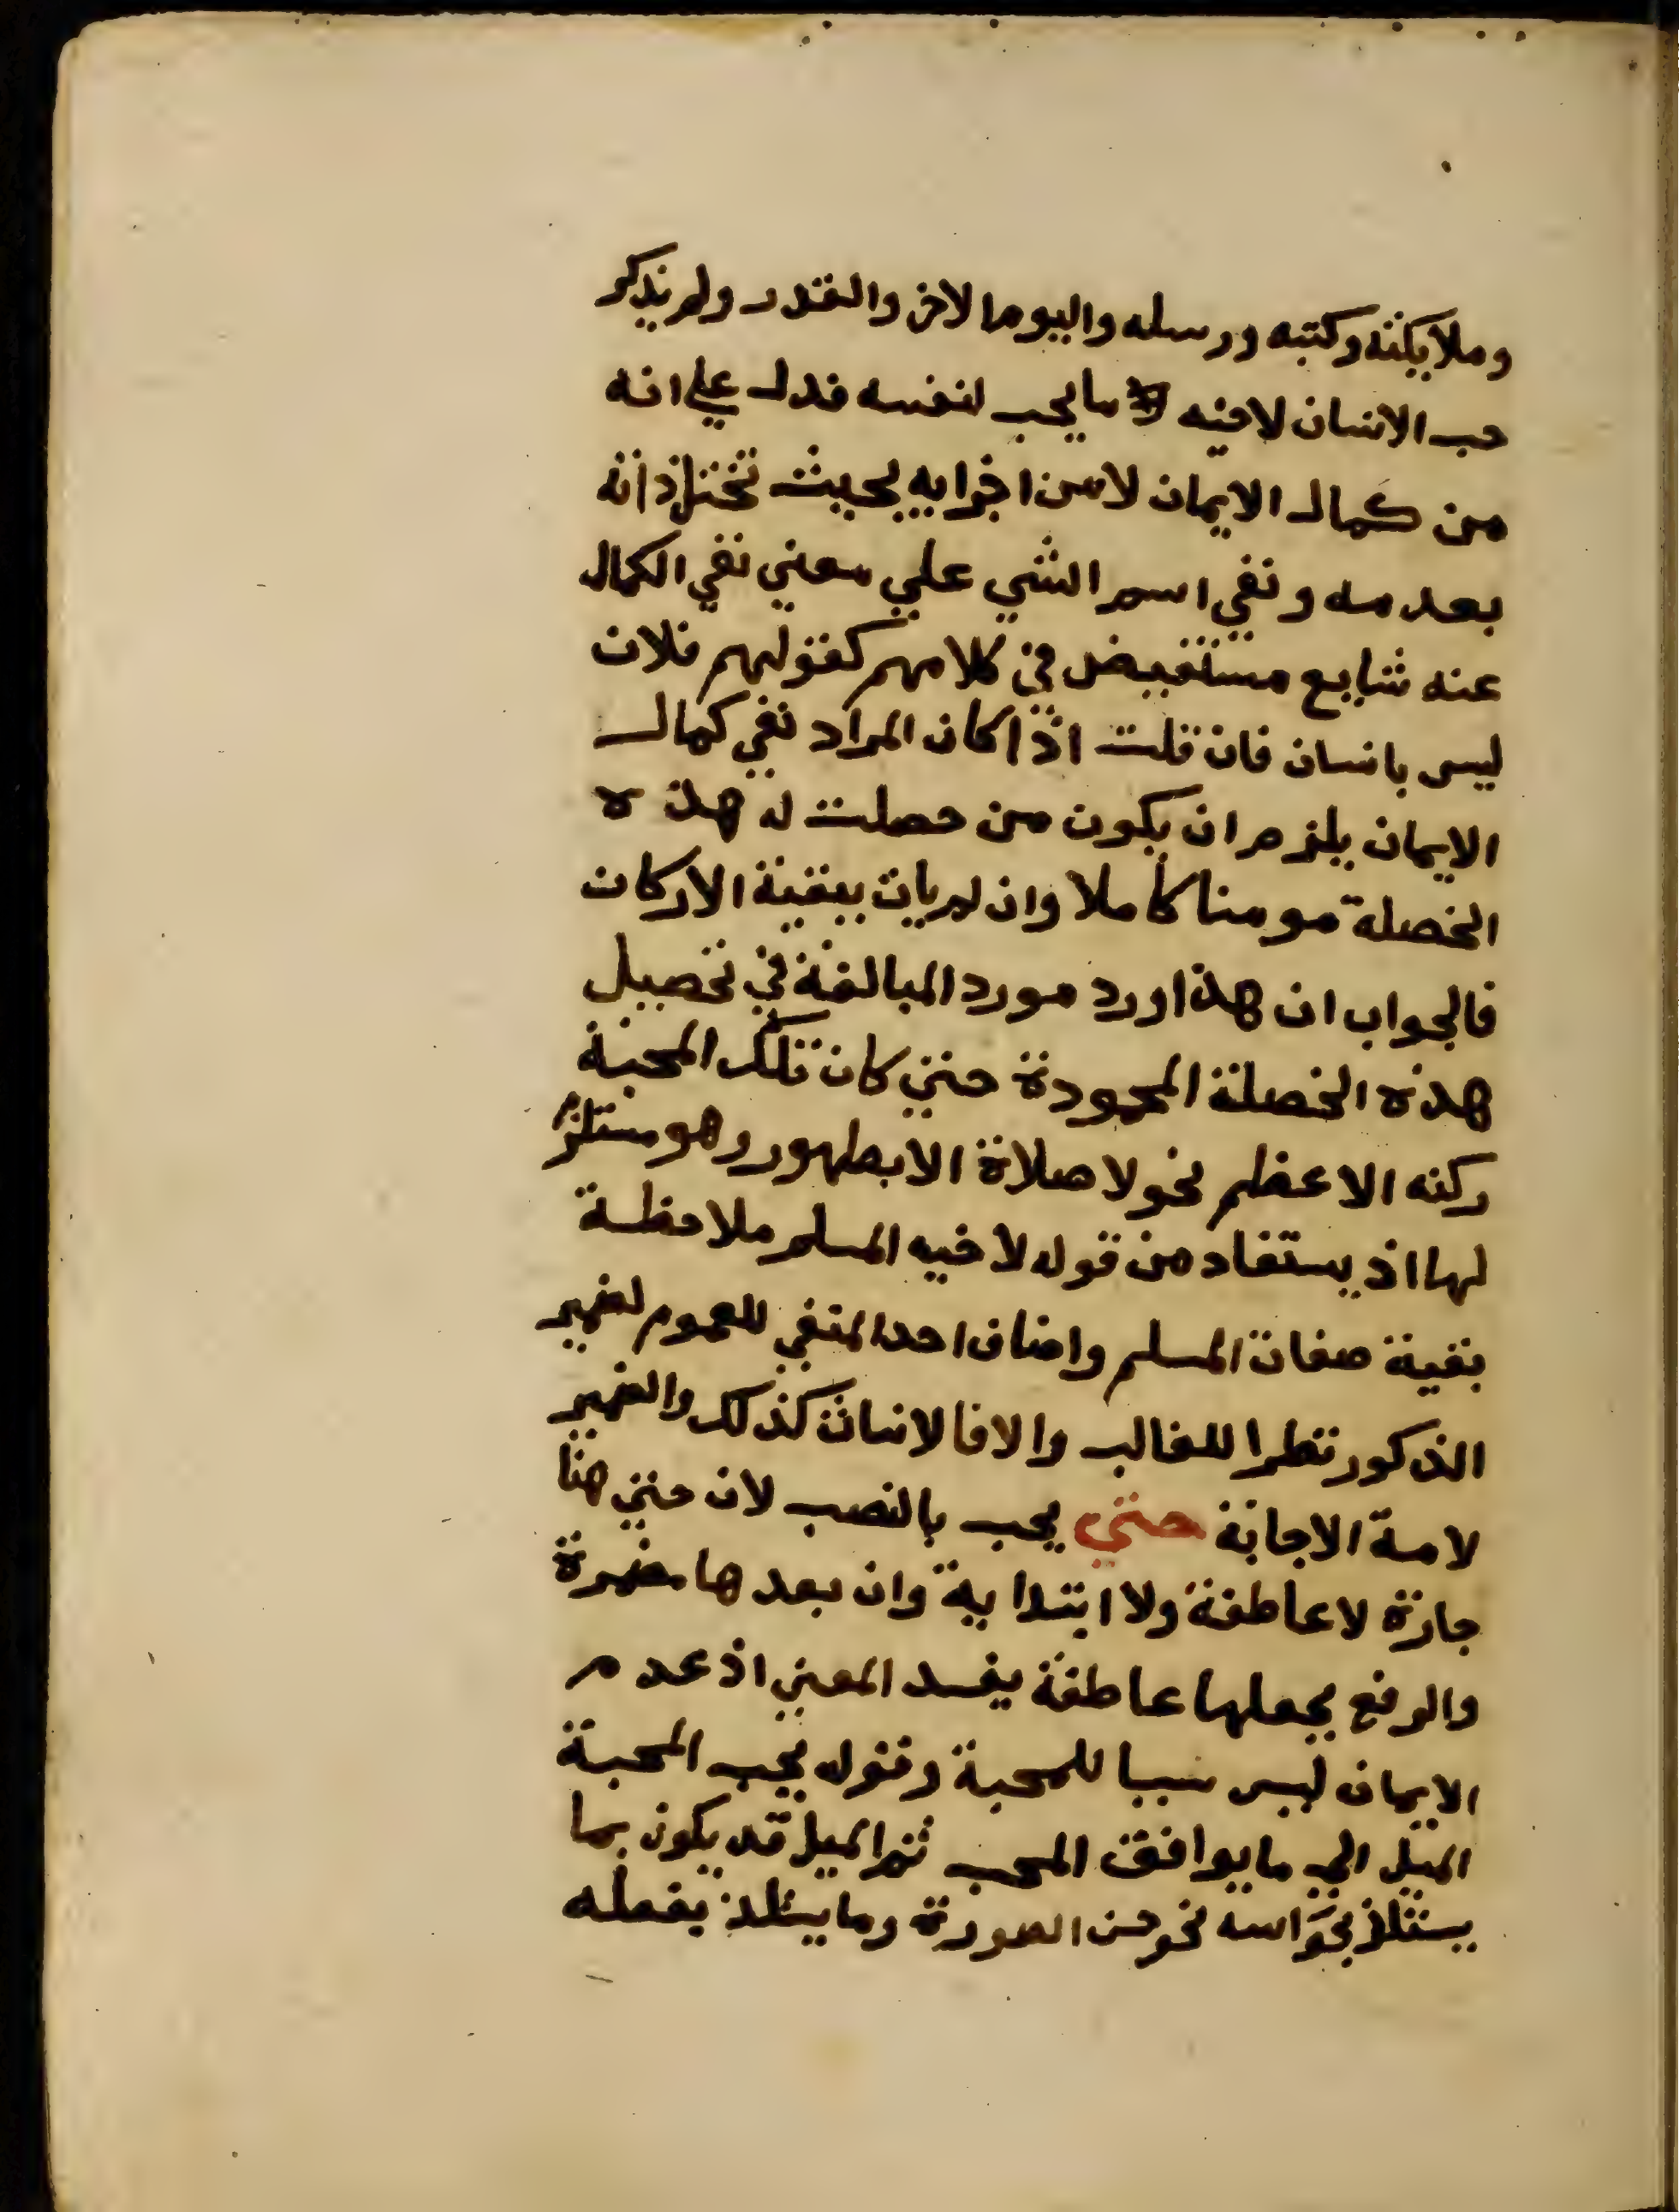 وملايكته وكتبه ورسله واليوم الاخر والقدر ولم يذكر
حب الانسان لاخيه ما يحب لنفسه فدل علي انه
من كمال الايمان لا من اجزايه بحيث تختل ذاته
بعدمه ونفي اسم الشي علي معني نفي الكمال
عنه شايع مستفيض في كلامهم كقولهم فلان
ليس بانسان فان قلت اذا كان المراد نفي كمال
الايمان يلزم ان يكون من حصلت له هذه
الخصلة مومنا كاملا وان لم يات ببقية الاركان
فالجواب ان هذا ورد مورد المبالغة في تحصيل
هذه الخصلة المحمودة حتي كان تلك المحبة
ركنه الاعظم نحو لا صلاة الا بطهور وهو مستلزم
لها اذ يستفاد من قوله لاخيه المسلم ملاحظة
بقية صفات المسلم واضاف احد المنفي للعموم لضمير
الذكور نظرا للغالب والا فالاناث كذلك والضمير
لامة الاجابة حتي يحب بالنصب لان حتي هنا
جارة لا عاطفة ولا ابتدايية وان بعدها مضمرة
والرفع بجعلها عاطفة يفسد المعني اذ عدم
الايمان ليس سببا للمحبة وقوله يحب المحبة
الميل الي ما يوافق المحب ثم الميل قد يكون بما
يستلذ بحَواسه نحو حسن الصورة وما يستلذ بفعله